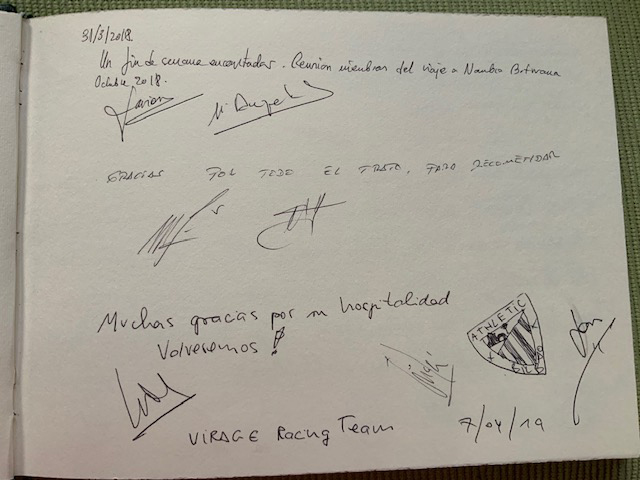 31/3/2018.
Un fin de semana encantados. Reunion miembros del viaje a Namibia Botswana
Octubre 2018.
Javier
M. Angel
GRACIAS POR TODO EL TRATO, PARA RECOMENDAR
Muchas gracias por su hospitalidad
Volveremos!
ATHLETIC
VIRAGE Racing Team
7/04/19